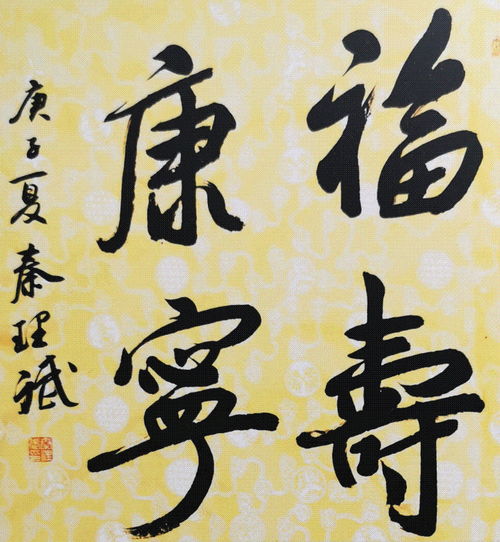 福壽
康寧
庚子夏秦理斌